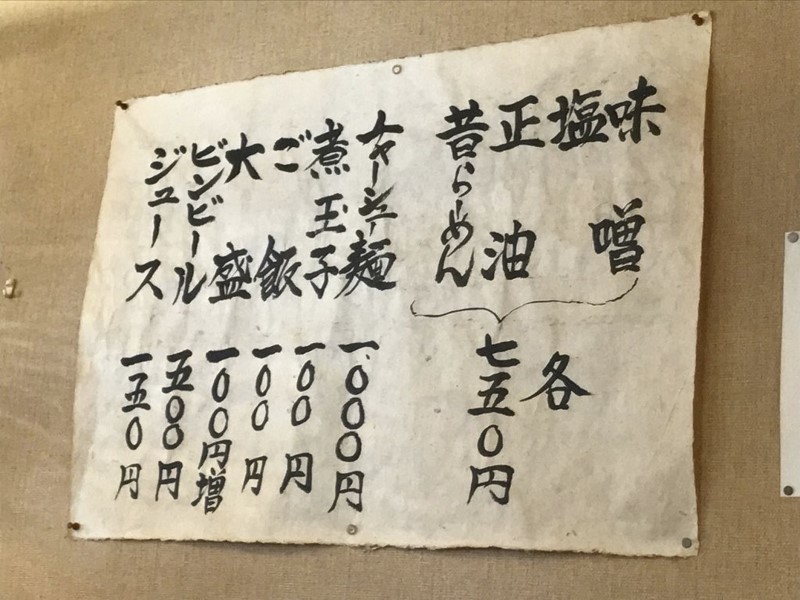 味噌
塩
正油
昔らーめん
各
七五〇円
チャーシュー麺 一、〇〇〇円
煮玉子 一〇〇円
ご飯 一〇〇円
大盛 一〇〇円増
ビンビール 五〇〇円
ジュース 一五〇円